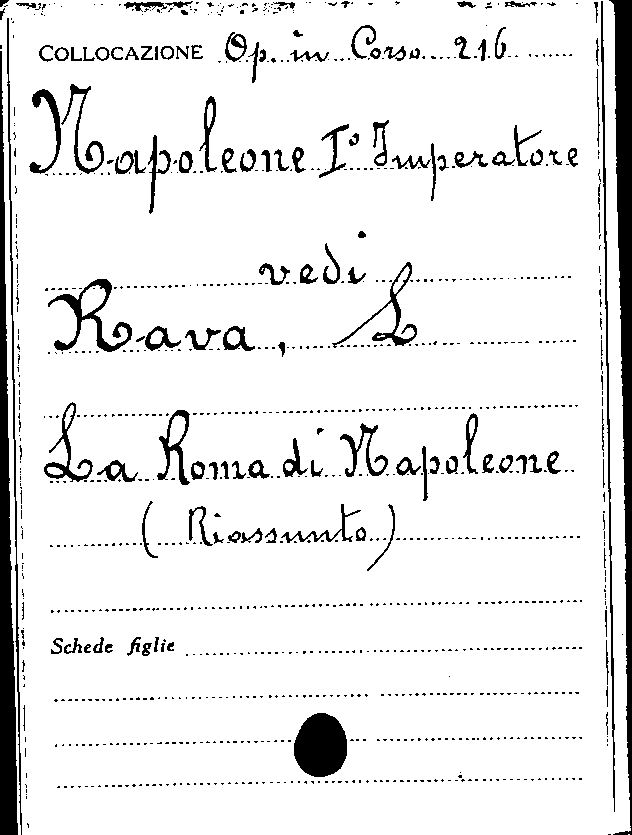 COLLOCAZIONE Op. in Corso 216
Napoleone I° Imperatore
vedi
Rava, L
La Roma di Napoleone
(Riassunto)
Schede figlie